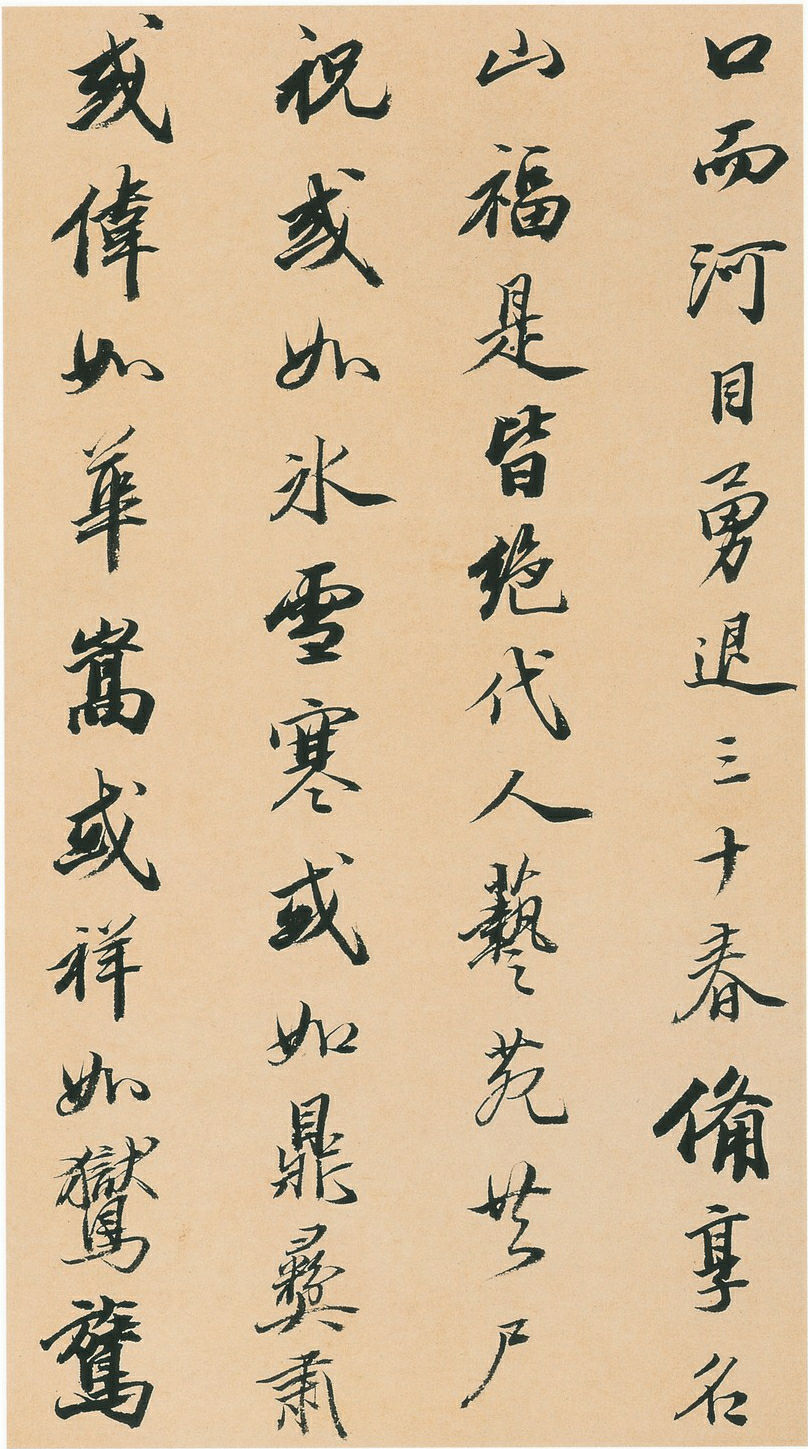 口而河目勇退三十春備享名
山福是皆絕代人藝苑共尸
祝或如氷雪寒或如鼎彝肅
或偉如華嵩或祥如鸑鷟